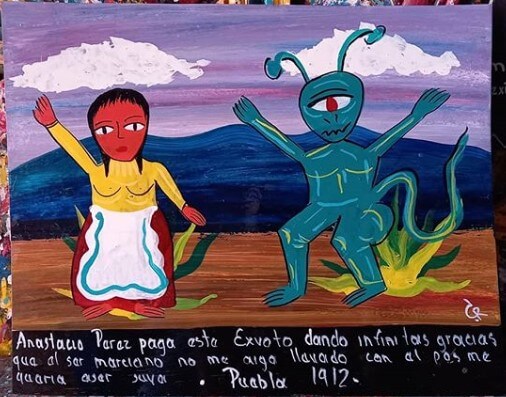 Anastacio Peraz paga esta Exvoto dando infinitas gracias
que al sar marciano no me aigo llavado con al pos me
quaria asar suya . Puebla 1912.